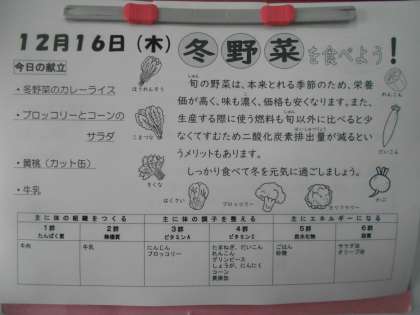 12月16日（木）冬野菜を食べよう！
今日の献立
・冬野菜のカレーライス
・ブロッコリーとコーンの
サラダ
・黄桃（カット缶）
・牛乳
ほうれんそう
こまつな
はくさい
ブロッコリー
カリフラワー
れんこん
だいこん
かぶ
旬の野菜は、本来とれる季節のため、栄養
価が高く、味も濃く、価格も安くなります。また、
生産する際に使う燃料も旬以外に比べると少
なくてすむため二酸化炭素排出量が減るとい
うメリットもあります。
しっかり食べて冬を元気に過ごしましょう。
主に体の組織をつくる 主に体の調子を整える 主にエネルギーになる
1群 2群 3群 4群 5群 6群
たんぱく質 無機質 ビタミンA ビタミンC 炭水化物 脂質
牛肉 牛乳 にんじん たまねぎ、だいこん ごはん サラダ油
ブロッコリー れんこん 砂糖 オリーブ油
グリンピース
しょうが、にんにく
コーン
黄桃缶